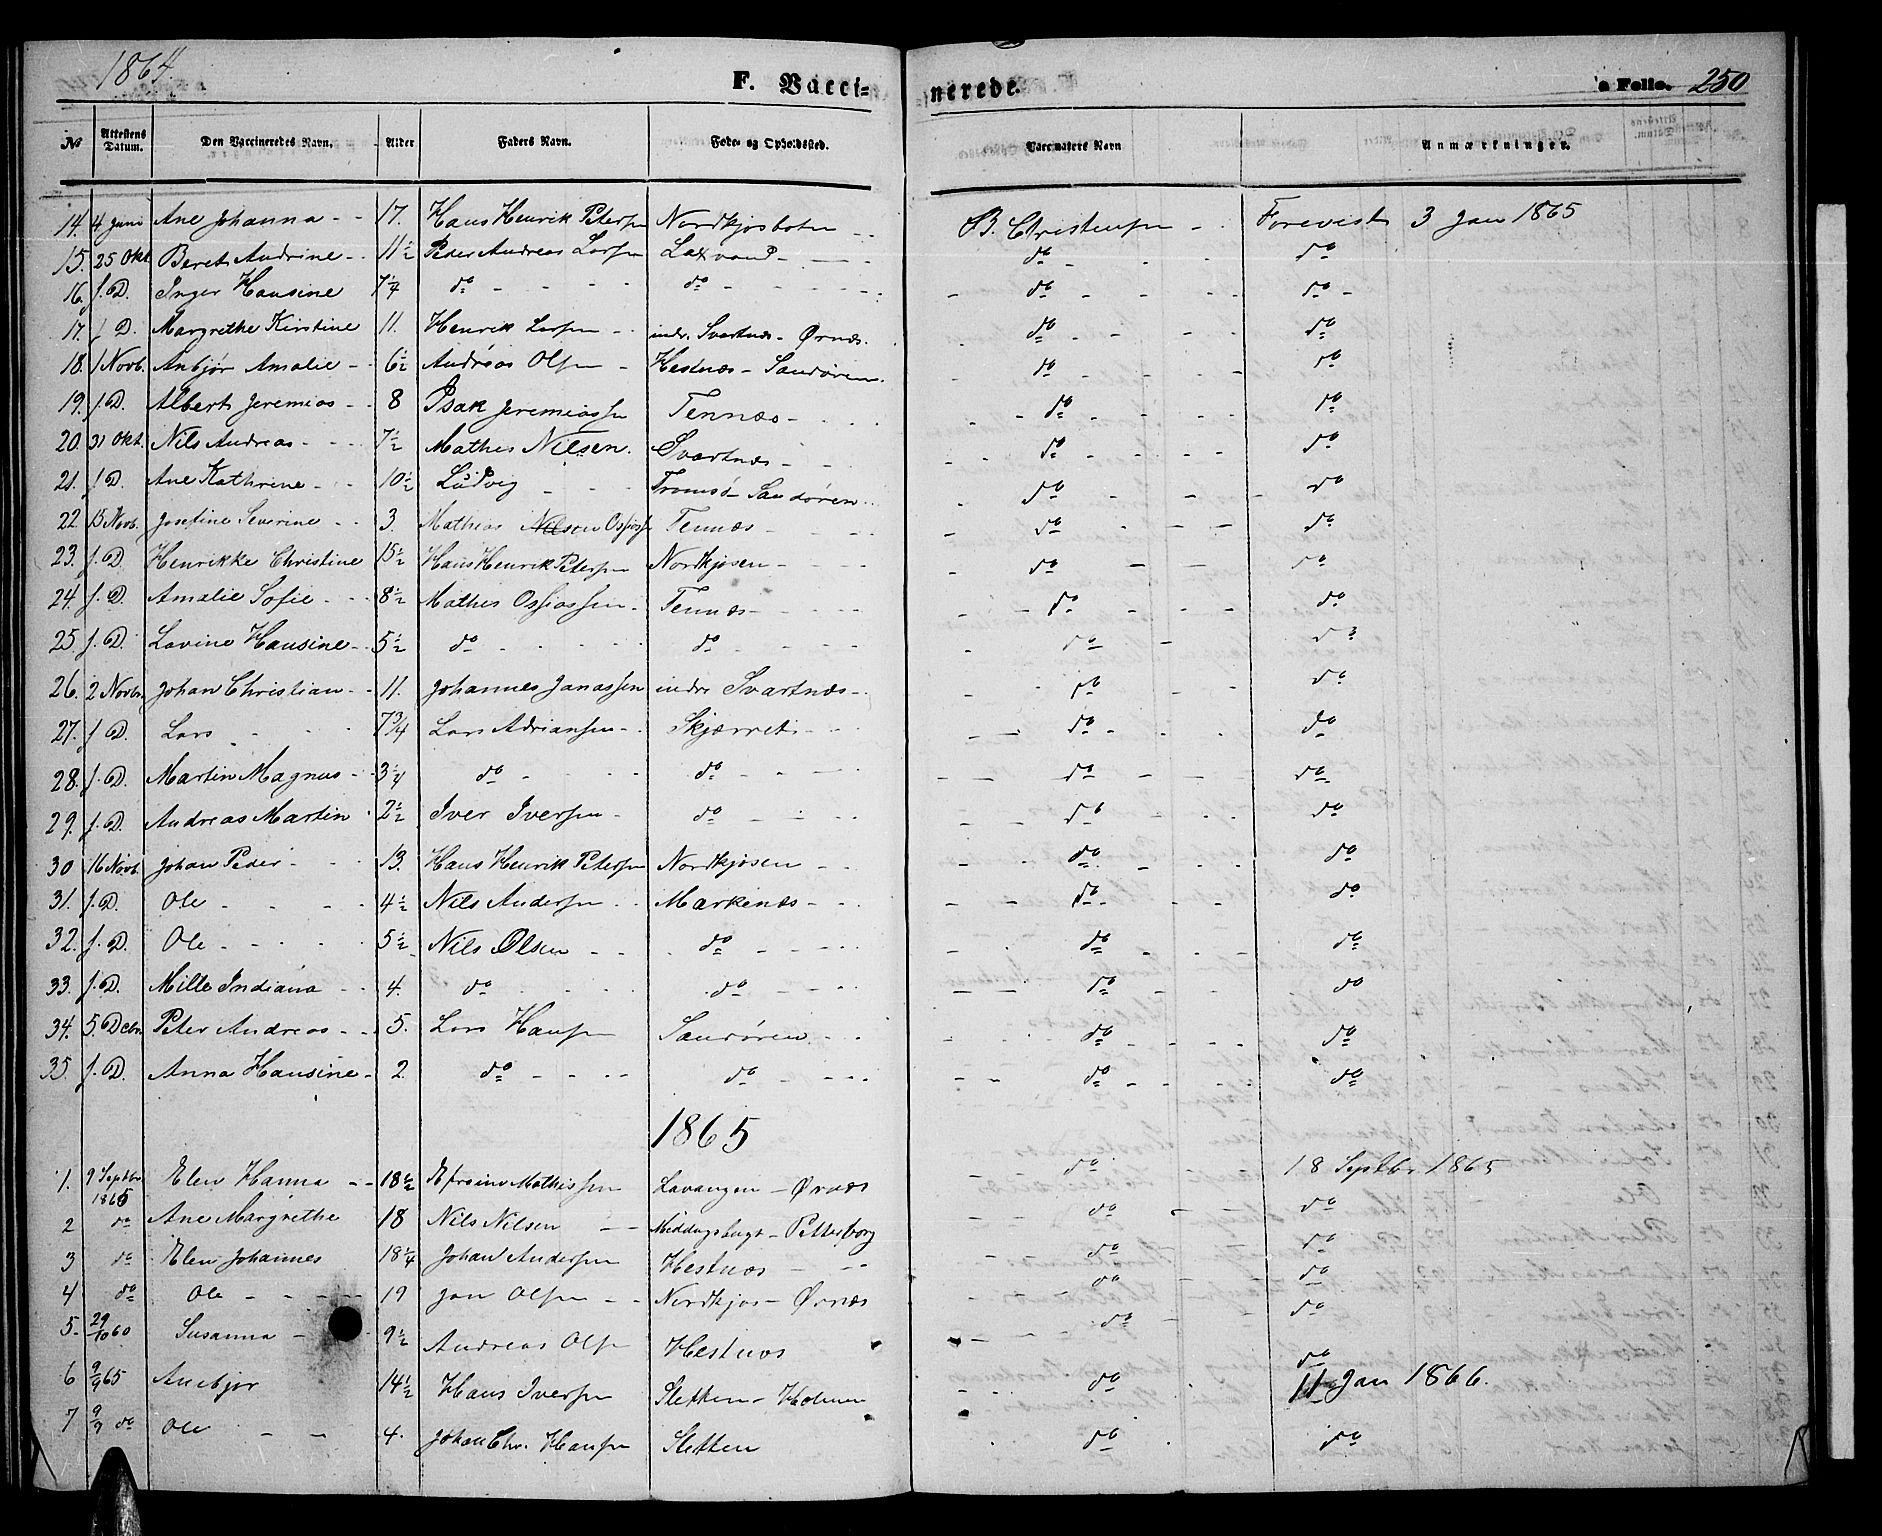 1864.
F. Vaccinerede.
a Folio. 250
No | Attestens Datum. | Den Vaccineredes Navn. | Alder | Faders Navn. | Føde- og Opholdsted. | Vaccinatørs Navn | Anmærkninger.
14. | 4 Juni | Ane Johanna - - | 17. | Hans Henrik Petersen | Nordkjosboten | B. Christensen | Forevist 3 Jan 1865
15. | 25 Okt | Beret Andrine - | 11½ | Peder Andreas Larsen | Laxvand | do | do
16. | f. D. | Inger Hansine | 7¼ | do | do | do | do
17. | f. D. | Margrethe Kirstine | 11. | Henrik Larsen | indr. Svartnæs - Ørnæs. | do | do
18. | 1 Novb. | Anbjør Amalie - | 6½ | Andreas Olsen | Hestnæs - Sandøren. | do | do
19. | f. D. | Albert Jeremias - | 8 | Isak Jeremiassen | Tennæs - | do | do
20. | 31 Okt. | Nils Andreas - | 7½ | Mathis Nilsen. | Svartnæs - | do | do
21. | f. D. | Ane Kathrine - | 10½ | Ludvig | Tromsø - Sandøren | do | do
22. | 15 Novb. | Josefine Severine - | 3. | Mathias Nilsen Ossiass | Tennæs - | do | do
23. | f. D. | Henrikke Christine | 15½ | Hans Henrik Petersen | Nordkjosen - | do | do
24. | f. D. | Amalie Sofie - | 8½ | Mathis Ossiassen. | Tennæs - | do | do
25. | f. D. | Lovine Hansine - | 5½ | do | do | do | do
26. | 2 Novbr. | Johan Christian - | 11. | Johannes Janassen | indre Svartnæs - | do | do
27. | f. D. | Lars | 7¾ | Lars Adriansen - | Skjærret - | do | do
28. | f. D. | Martin Magnus - | 3¼ | do | do | do | do
29. | f. D. | Andreas Martin | 2½ | Iver Iversen - | do | do | do
30 | 16 Novb. | Johan Peder - | 13. | Hans Henrik Petersen | Nordkjosen | do | do
31. | f. D. | Ole | 4½ | Nils Andersen | Markenæs - | do | do
32. | f. D. | Ole | 5½ | Nils Olsen | do | do | do
33. | f. D. | Mille Indiana | 4. | do | do | do | do
34. | 5. Debr. | Peter Andreas - | 5. | Lars Hansen | Sandøren | do | do
35. | f. D. | Anna Hansine - | 2. | do | do | do | do
1865
1. | 9 Septbr. 1865 | Elen Hanna - - | 18½ | Efraim Mathissen | Lavangen - Ørnæs | do | 18 Septbr. 1865
2 | do | Ane Margrethe | 18 | Nils Nilsen | Middagsbugt - Pettersborg | do | do
3 | do | Elen Johannes | 18¼ | Johan Andersen | Hestnæs | do | do
4 | do | Ole | 19 | Jon Olsen | Nordkjos - Ørnæs | do | do
5. | 29/10 60 | Susanna - | 9½ | Andreas Olsen | Hestnæs | do | do
6 | 9/9 65 | Anebjør | 14½ | Hans Iversen | Sletten - Holmen | do | 11 Jan 1866.
7 | 9/9 do | Ole | 4. | Johan Chr. Hansen | Sletten | do | do